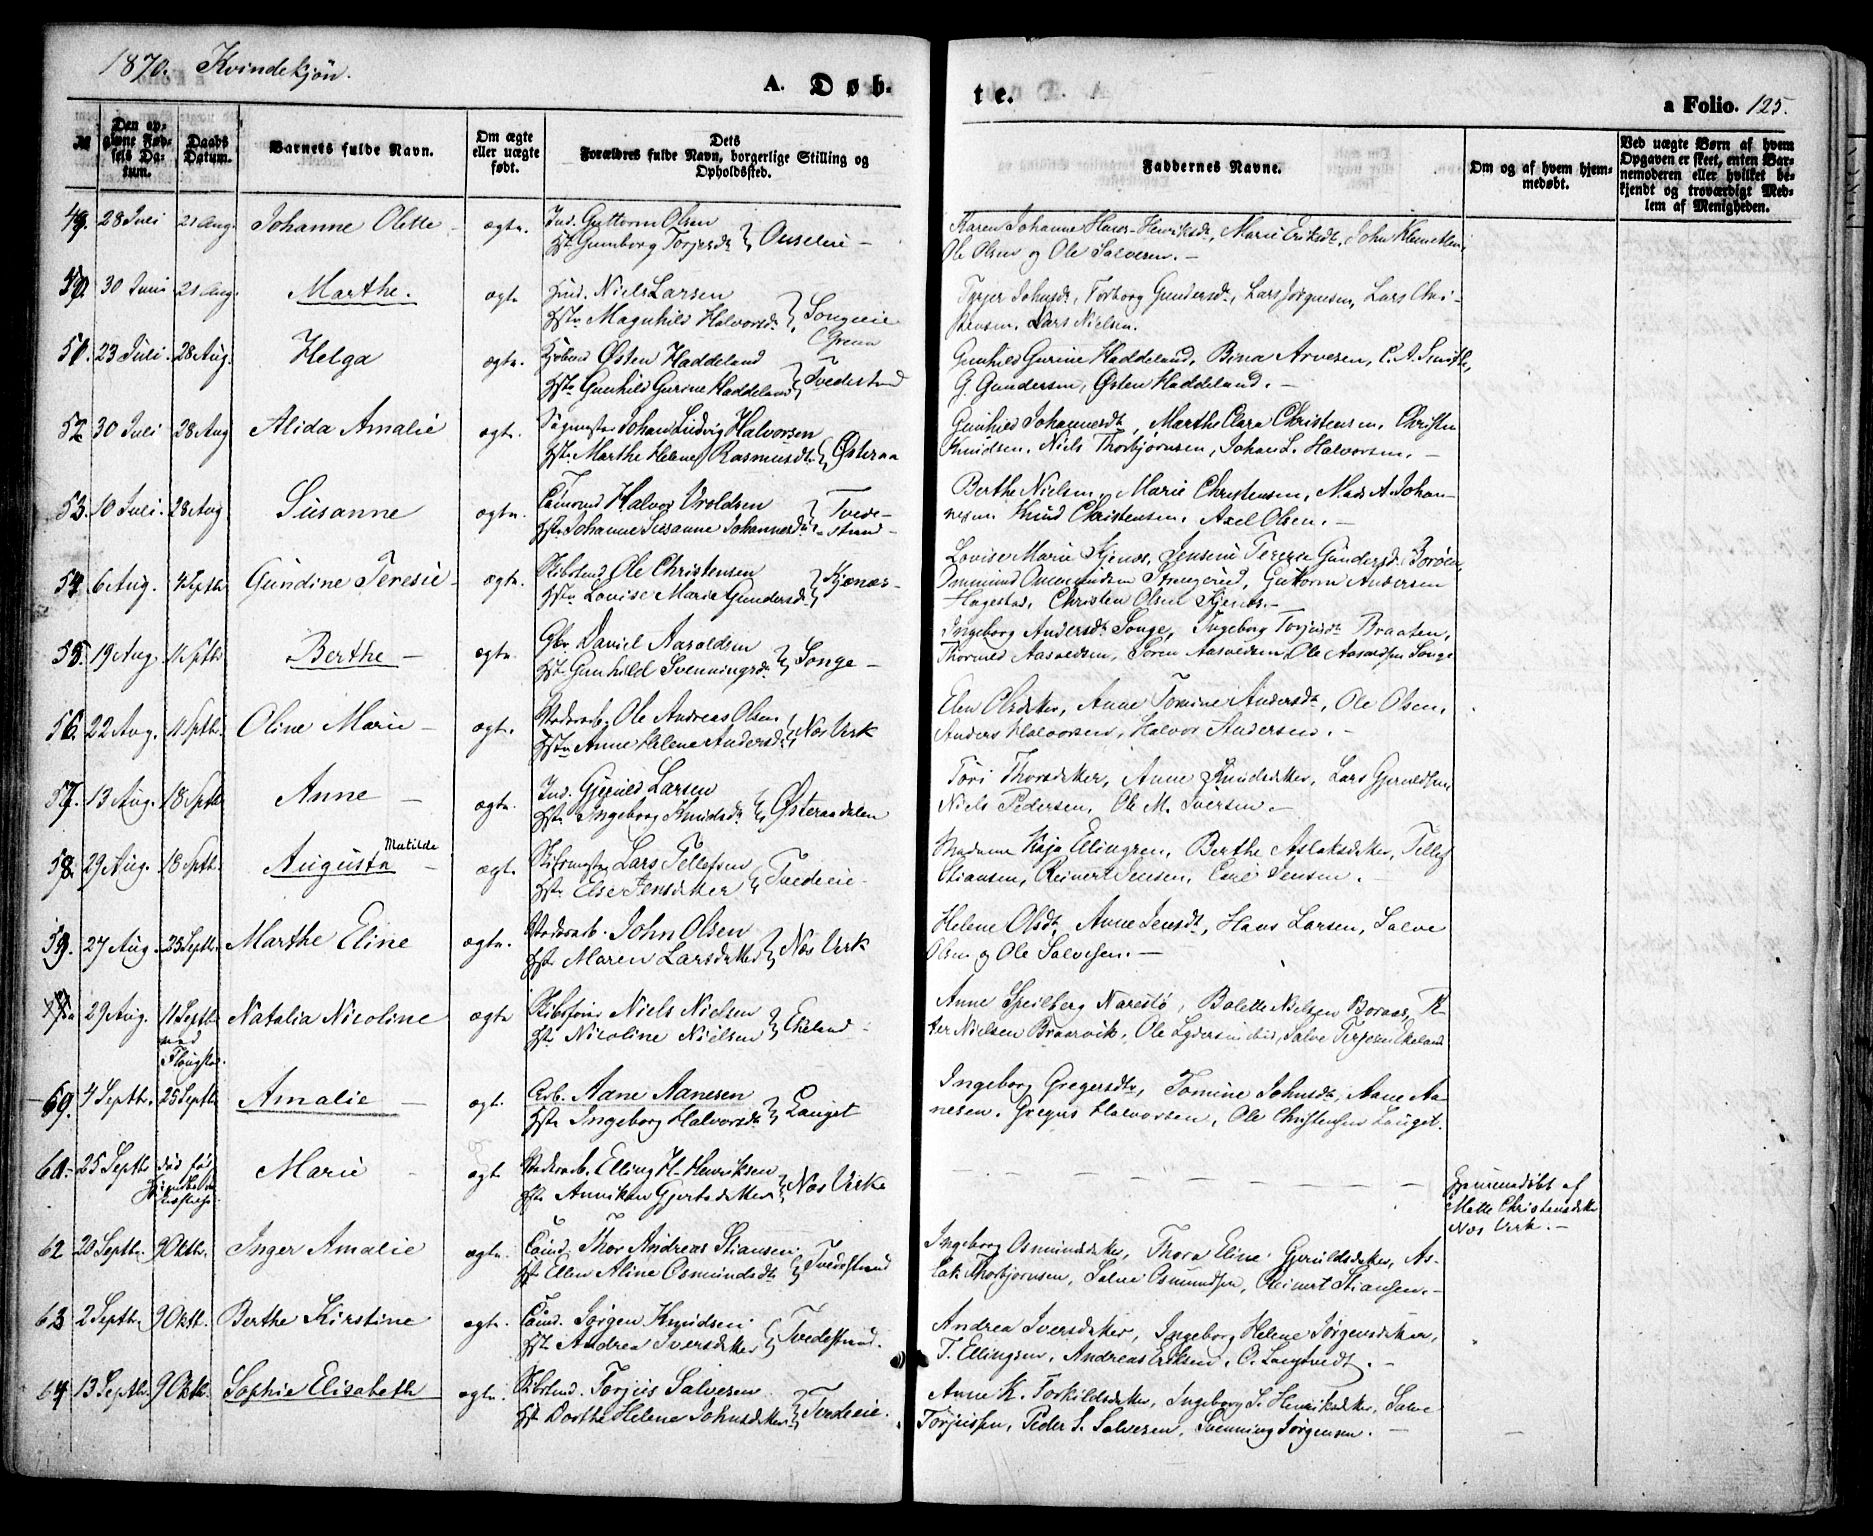 1870. Kvindekjøn.
A. Døbte.
a Folio. 125.
№
Den opgivne Fødsels Datum.
Daabs Datum.
Barnets fulde Navn.
Om ægte eller uægte født.
Dets Forældres fulde Navn, borgerlige Stilling og Opholdssted.
Faddernes Navne.
Om og af hvem hjemmedøbt.
Ved uægte Børn af hvem Opgaven er skeet, enten Barnemoderen eller hvilket bekjendt og troværdigt Medlem af Menigheden.
49. 28 Juli 21 Aug. Johanne Olette ægte. Ind. Guttorm Olsen
Hst. Gunborg Torjersd.
Karen Johanne Henriksd., Marie Eriksdt., John
Ole Olsen og Ole Salvesen.
50. 30 Juni 21 Aug. Marthe. ægte Niels Larsen
Hstr. Magnhild Halvorsd. Songeeie
Torborg Gundersd., Lars Jørgensen, Lars Chri-
stensen, Lars Nielsen.
51. 23 Juli. 28 Aug. Helga ægte. Østen Haddeland
Hstr. Gunhild Gurine Haddeland Tvedestrand
Gunhild Gurine Haddeland, Bina Arvesen, C. A. Smith,
G. Gundersen, Østen Haddeland.
52. 30 Juli 28 Aug Alida Amalie ægte. Johan Ludvig Halvorsen
Hstr. Marthe Helene Rasmusdt. Østeraa
Gunhild Johannesdt., Marthe Clara Christensen, Christen
Knudsen, Niels Thorbjørnsen, Johan L. Halvorsen.
53. 10 Juli. 28 Aug Susanne ægte. Tømmd Halvor Uroldsen
Hstr. Johanne Susanne Johannesd. Tvede-
strand
Berthe Nielsen, Marie Christensen, Mads A. Johan-
nesen Knud Christensen, Axel Olsen.
54. 6 Aug. 4 Septb. Gundine Teresie ægte. Skibstmd Ole Christensen
Hstr. Lovise Marie Gundersd. Kjenæs
Lovise Marie Kjenæs, Jensine Terese Gundersd. Borøen,
Guttorm Andersen
Hagestad, Christen Olsen Kjenæs.
55. 19 Aug. 11 Septb. Berthe ægte. Gbr. Daniel Aasoldsen
Hst. Gunhild Svenningsd. Songe
Ingeborg Andersdt. Songe, Ingeborg Torjusdt. Braaten,
Søren Ole Songe
56. 22 Aug. 11 Septb. Oline Marie ægte. Ole Andreas Olsen
Hstr. Anne Helene Andersd. Næs Verk
Elen Olsdatter, Anne Tomine Andersdt., Ole Olsen,
Anders Halvorsen, Halvor Andersen.
57. 13 Aug. 18 Septb Anne ægte. Ind. Gjeruld Larsen
Hstr. Ingeborg Knudsd. Østeraadalen
Tori Thorsdatter, Anne Knudsdatter, Lars Gjeruldsen,
Niels Pedersen, Ole M. Iversen.
58. 29 Aug. 18 Septb. Augusta Matilde ægte. Lars Tellefsen
Hstr. Else Jensdatter Tvedeeie.
Madame Kaja Ellingsen, Berthe Aslaksdatter, Tellef
Stiansen, Reinert Jensen, Emil Jensen.
59. 27 Aug. 25 Septb. Marthe Eline ægte. John Olsen
Hstr. Maren Larsdatter Næs Verk
Helene Olsdt., Anne Jensdt., Hans Larsen, Salve
Olsen og Ole Salvesen.
29 Aug. 11 Septb. ved Flangstad. Natalia Nicoline ægte Niels Nielsen
Hstr. Nicoline Nielsen Ekeland
Anne Speilberg Narestø, Bolette Nielsen Boraas, Pe-
ter Nielsen Braarvik, Ole Lydersen ibid, Salve Terjesen Ekeland
60. 4 Septb. 25 Septb Amalie ægt. Arb. Aane Aanesen
Hstr. Ingeborg Halvorsd. Lauget
Ingeborg Gregersdtr., Tomine Johnsdt., Aane Aa-
nesen, Gregers Halvorsen, Ole Christensen Lauget.
61. 25 Septb. død før Marie ægte Elling H. Henriksen
Hstr. Anniken Gjertsdatter Næs Verk
Hjemmedøbt af
Mette Christensdatter
Næs Verk.
62 20 Septb. 9 Oktb. Inger Amalie ægte. Thor Andreas Stiansen
Hst. Ellen Aline Osmundsdt. Tvedestrand
Ingeborg Osmundsdatter, Thora Eline Gjeruldsdatter, As-
lak Thorbjørnsen, Salve Osmundsen, Reinert Stiansen.
63 2 Septb. 9 Oktb. Berthe Kirstine ægte. Jørgen Knudsen
Hst. Andrea Iversdatter Tvedestrand.
Andrea Iversdatter, Ingeborg Helene Jørgensdatter,
T. Ellingsen, Andreas Eriksen, O. Langtvedt.
64 13 Septb. 9 Oktb. Sophie Elisabeth ægte. Skibstmd. Torjus Salvesen
Hst. Dorthe Helene Johnsdatter Tvedeeie.
Anne K. Torkildsdatter, Ingeborg S. Henriksdatter, Salve
Torjussen, Peder S. Salvesen, Svenning Jørgensen.